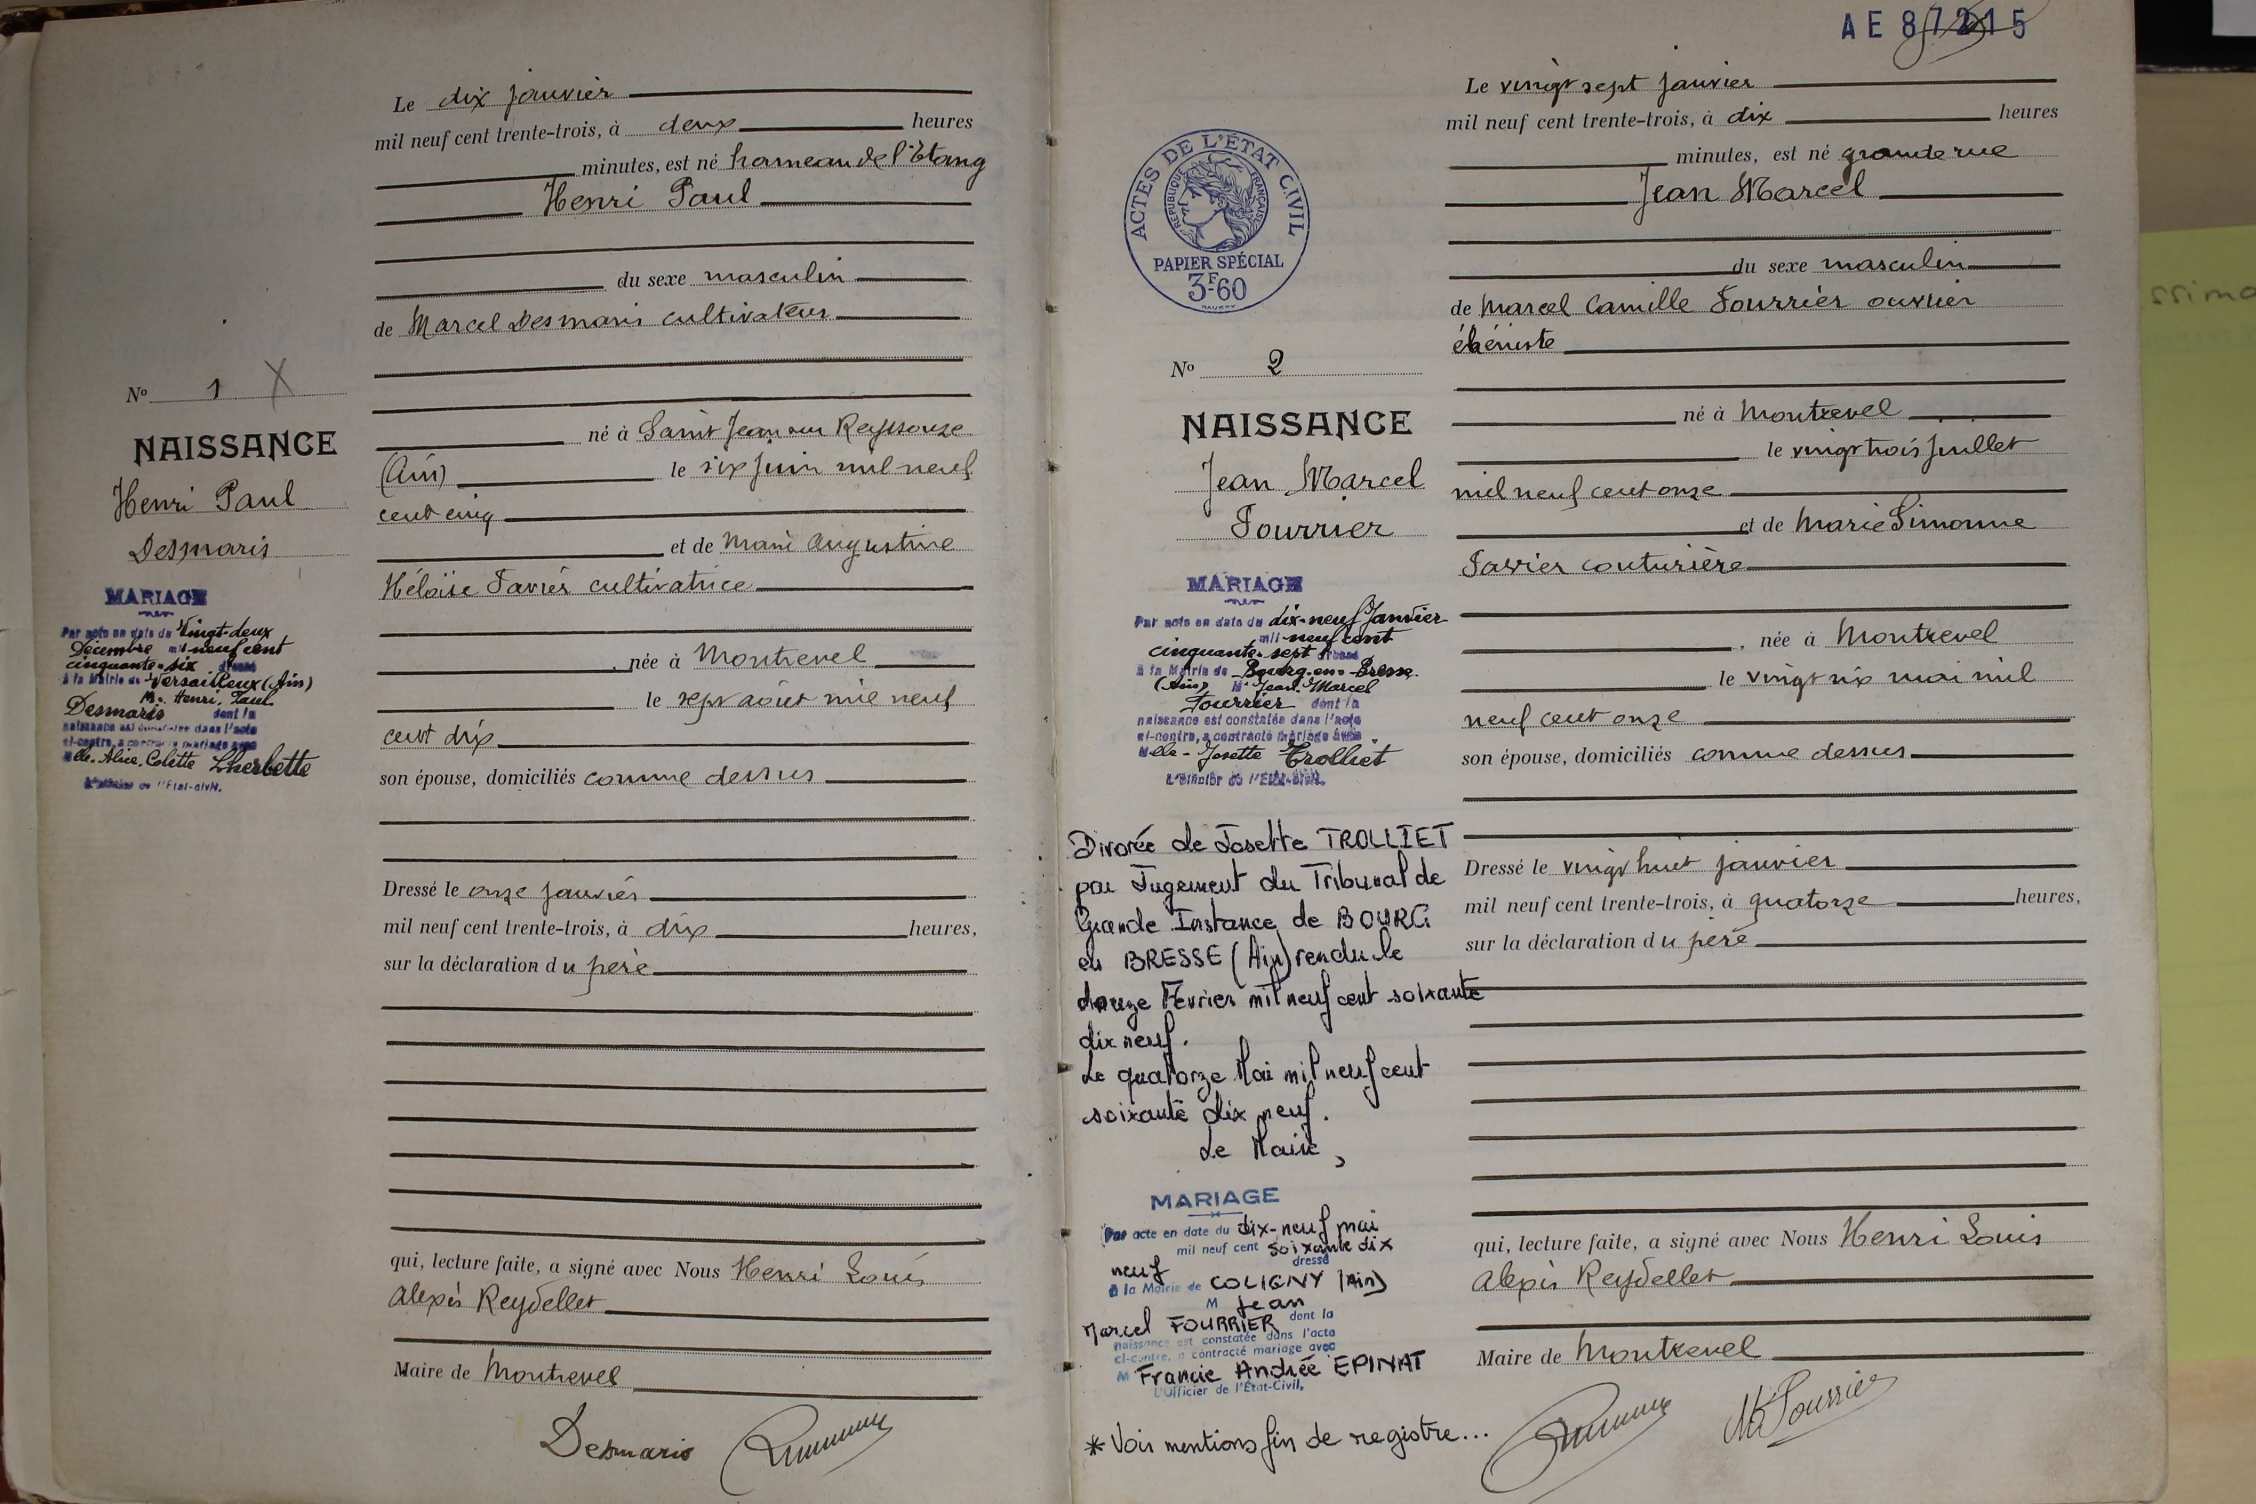 Le dix janvier
mil neuf cent trente-trois, à deux heures
minutes, est né hameau de l'Etang
Henri Paul
du sexe masculin
de Marcel Desmaris cultivateur
né à Saint Jean sur Reyssouze
(Ain) le six juin mil neuf
cent cinq
et de Marie Augustine
Héloïse Favier cultivatrice
née à Montrevel
le sept août mil neuf
cent dix
son épouse, domiciliés comme dessus
Dressé le onze janvier
mil neuf cent trente-trois, à dix heures,
sur la déclaration du père
qui, lecture faite, a signé avec Nous Henri Louis
Alexis Reydellet
Maire de Montrevel
Desmaris
No 1 X
NAISSANCE
Henri Paul
Desmaris
MARIAGE
Par acte en date du Vingt-deux
Décembre mil neuf cent
cinquante-six dressé
à la Mairie de Versailleux (Ain)
M. Henri, Paul
Desmaris dont la
naissance est constatée dans l'acte
ci-contre, a contracté mariage avec
Melle. Alice, Colette Lherbette
L'Officier de l'Etat-civil.
AE 87215
ACTES DE L'ÉTAT CIVIL
RÉPUBLIQUE FRANÇAISE
PAPIER SPÉCIAL
3F.60
No 2
NAISSANCE
Jean Marcel
Fourrier
MARIAGE
Par acte en date du dix-neuf Janvier
mil neuf cent
cinquante-sept dressé
à la Mairie de Bourg-en-Bresse
(Ain) M. Jean-Marcel
Fourrier dont la
naissance est constatée dans l'acte
ci-contre, a contracté mariage avec
Melle - Josette Trolliet
L'Officier de l'Etat-civil.
Divorcé de Josette TROLLIET
par Jugement du Tribunal de
Grande Instance de BOURG
en BRESSE (Ain) rendu le
douze Février mil neuf cent soixante
dix neuf.
Le quatorze Mai mil neuf cent
soixante dix neuf.
Le Maire,
MARIAGE
Par acte en date du dix-neuf mai
mil neuf cent soixante dix
neuf dressé
à la Mairie de COLIGNY (Ain)
M Jean
Marcel FOURRIER dont la
naissance est constatée dans l'acte
ci-contre, a contracté mariage avec
M Francie Andrée EPINAT
L'Officier de l'Etat-Civil,
* Voir mentions fin de registre...
Le vingt sept janvier
mil neuf cent trente-trois, à dix heures
minutes, est né grande rue
Jean Marcel
du sexe masculin
de Marcel Camille Fourrier ouvrier
ébéniste
né à Montrevel
le vingt trois juillet
mil neuf cent onze
et de Marie Simonne
Favier couturière
née à Montrevel
le vingt six mai mil
neuf cent onze
son épouse, domiciliés comme dessus
Dressé le vingt huit janvier
mil neuf cent trente-trois, à quatorze heures,
sur la déclaration du père
qui, lecture faite, a signé avec Nous Henri Louis
Alexis Reydellet
Maire de Montrevel
Fourrier